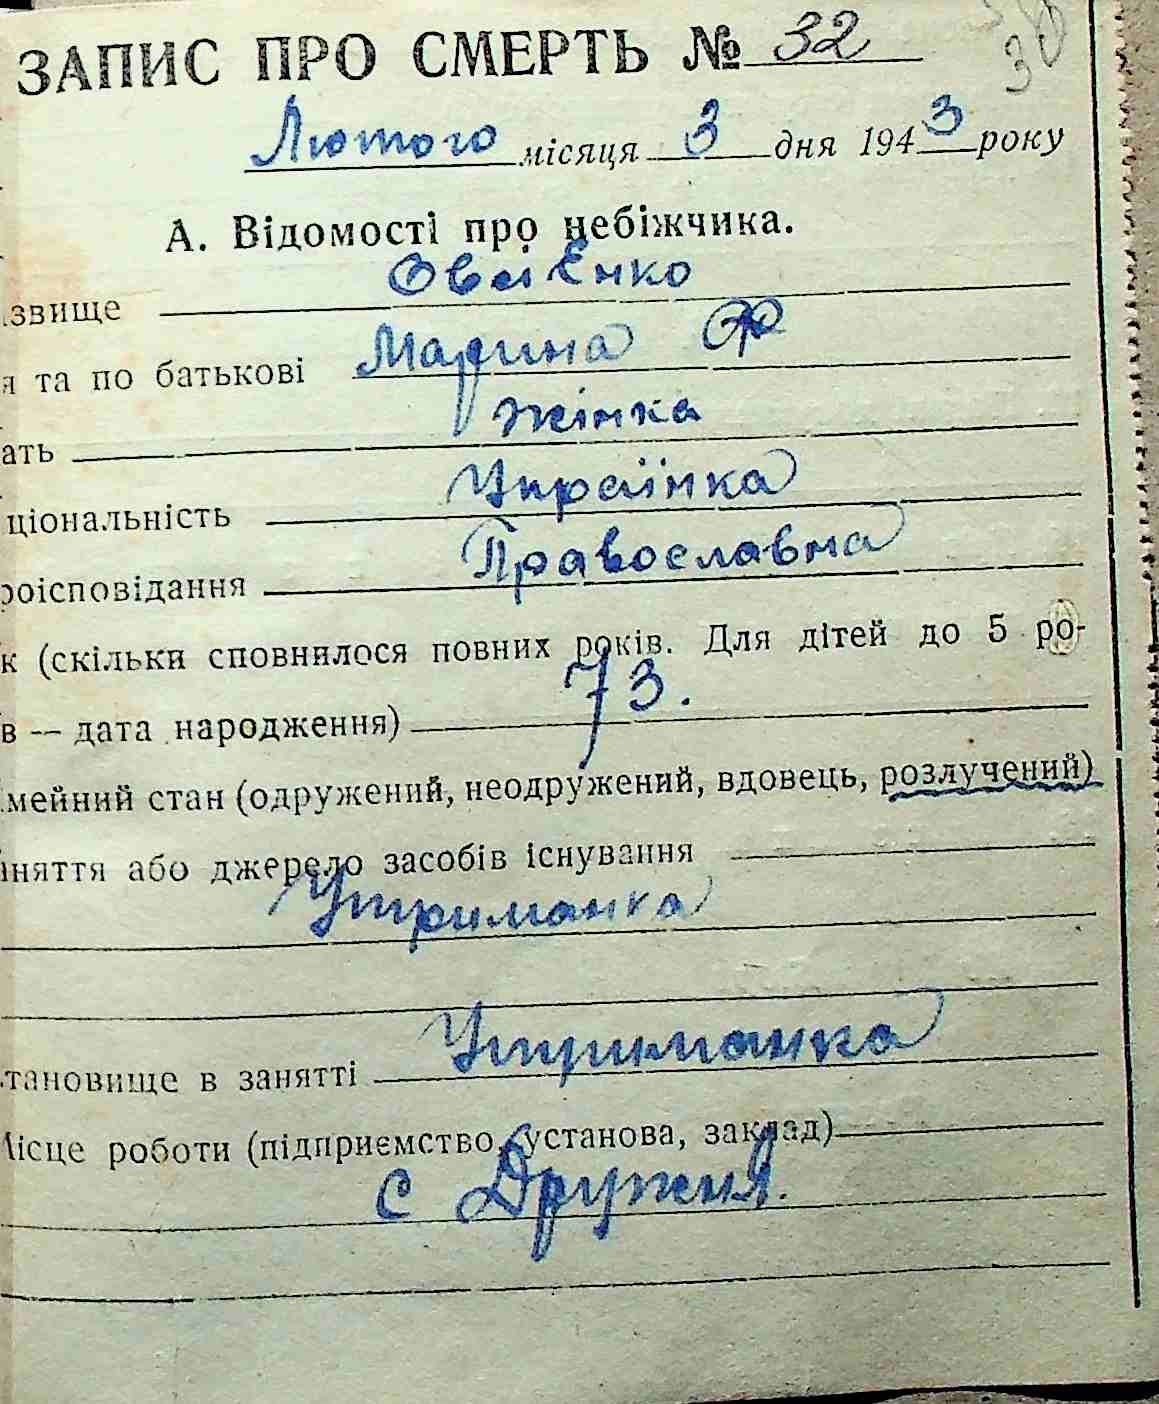 ЗАПИС ПРО СМЕРТЬ № 32
30
Лютого місяця 3 дня 1943 року
А. Відомості про небіжчика.
Овсієнко
ізвище
Марина Ф
я та по батькові
Жінка
ать
Українка
ціональність
Православна
роісповідання
к (скільки сповнилося повних років. Для дітей до 5 ро-
73.
в — дата народження)
мейний стан (одружений, неодружений, вдовець, розлучений)
іняття або джерело засобів існування
Утриманка
Утриманка
тановище в занятті
Місце роботи (підприємство, установа, заклад)
с Дружня.